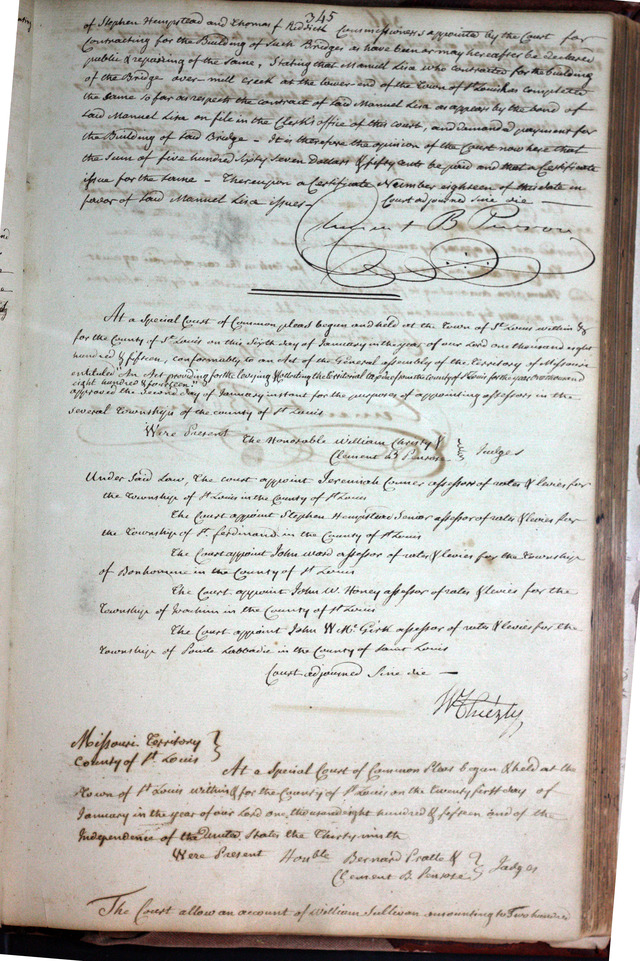 345
of Stephen Hempstead and Thomas F Reddick Commissioners appointed by the Court for
Contracting for the Building of Such Bridges as have been or may hereafter be declared
public & repairing of the Same, Stating that Manuel Lisa who contracted for the building
of the Bridge over mill creek at the lower end of the Town of St Louis has completed
the Same so far as respects the contract of Said Manuel Lisa as appears by the bond of
Said Manuel Lisa on file in the Clerks office of this court, and demanded payment for
the Building of Said Bridge – It is therefore the opinion of the Court now here that
the Sum of five hundred Sixty Seven Dollars & fifty cents be paid and that a Certificate
issue for the Same – Thereupon a Certificate Number eighteen of this date in
favor of Said Manuel Lisa issues – Court adjourned Sine die –
Clement B Penrose
At a Special Court of Common pleas begun and held at the Town of St Louis within &
for the County of St Louis on this Sixth day of January in the year of our Lord one thousand eight
hundred & fifteen, conformably to an act of the General assembly of the Territory of Missouri
entituled "An Act providing for the levying & collecting the territorial tax in & from the county of St Louis for the year One thousand
eight hundred & fourteen"
approved the Second day of January instant for the purpose of appointing assessors in the
several Townships of the county of St Louis
Were Present The Honorable William Christy &
Clement B Penrose Judges
Under Said Law, The court appoint Jeremiah Conner assessor of rates & levies for
the Township of St Louis in the County of St Louis
The Court appoint Stephen Hempstead Senior assessor of rates & levies for
the Township of St. Ferdinand in the County of St Louis
The Court appoint John Ward assessor of rates & levies for the Township
of Bonhomme in the County of St Louis
The Court appoint John W. Honey assessor of rates & levies for the
Township of Joachim in the County of St Louis
The Court appoint John W Mc Girk assessor of rates & levies for the
Township of Pointe Labbadie in the County of Saint Louis
Court adjourned Sine die –
Wm Christy
Missouri Territory
County of St Louis
At a Special Court of Common Pleas began & held at the
Town of St Louis within & for the County of St Louis on the twenty first day of
January in the year of our Lord one thousand eight hundred & fifteen and of the
Independence of the United States the Thirty ninth
Were Present Honble Bernard Pratte &
Clement B. Penrose Judges
The Court allow an account of William Sullivan amounting to Two hundred